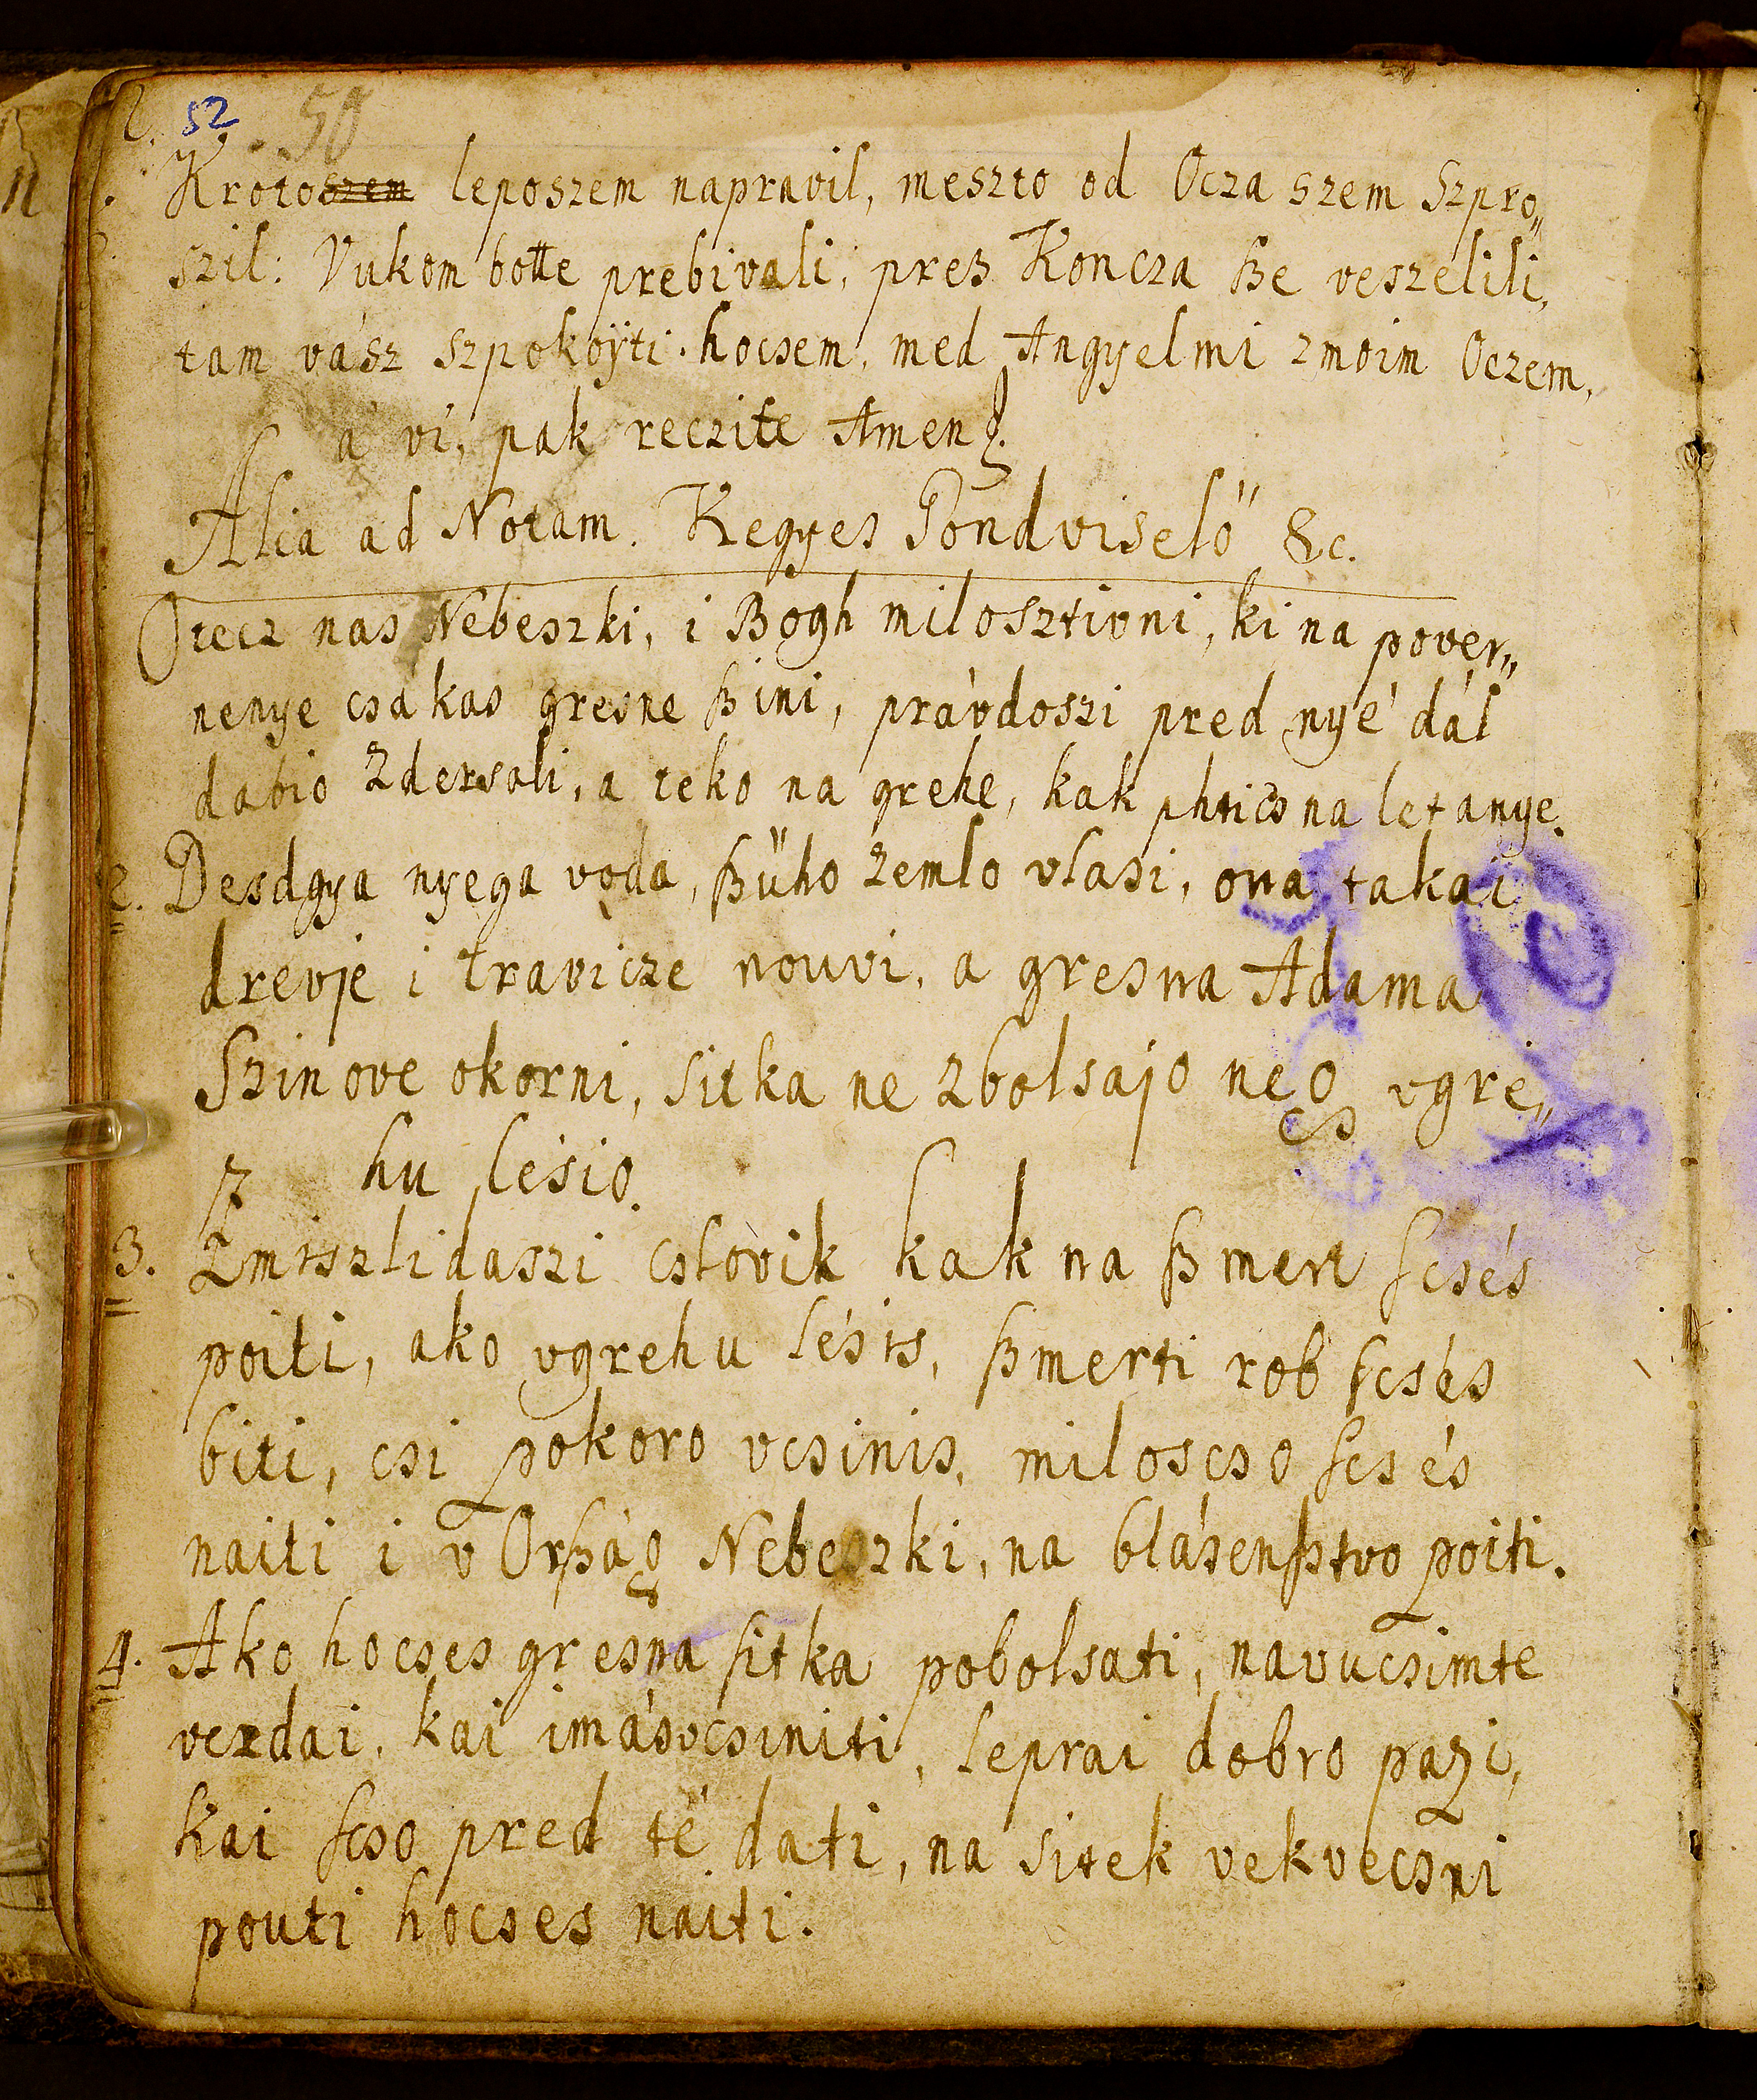 52
50
Kroto szem leposzem napravil, meszto od Ocza szem Szpro„
szil: Vukom botte prebivali, preß Koncza ße veszelili,
tam vász szpokoÿti hocsem, med Angyelmi zmoim Oczem,
á vi, pak reczite Amen.
Alia ad Notam. Kegyes Gondviselö" &c.
Otecz nas Nebeszki, i Bogh milosztivni, ki na pover„
nenye csakas gresne ßini, právdoszi pred nyé dál
dabio zdersali, a teko na grehe, kak phtics na letanye.
2. Desdgya nyega voda, ßüho zemlo vlasi, ona takai
drevje i travicze nouvi, a gresna Adama
Szinove okorni, sitka ne zbolsajo neg vgre„
hu lésio.
3. Zmiszlidaszi cslovik kak na ßmert scsés
poiti, ako vgrehu lésis, ßmerti rob scsés
biti, csi pokoro vcsinis, miloscso scsés
naiti i v Orßág Nebeszki, na blásenßtvo poiti.
4. Ako hocses gresna sitka pobolsati, navucsimte
vezdai, kai imásvcsiniti, leprai dobro pazi,
kai scso pred té dati, na sitek vekvecsni
pouti hocses naiti.